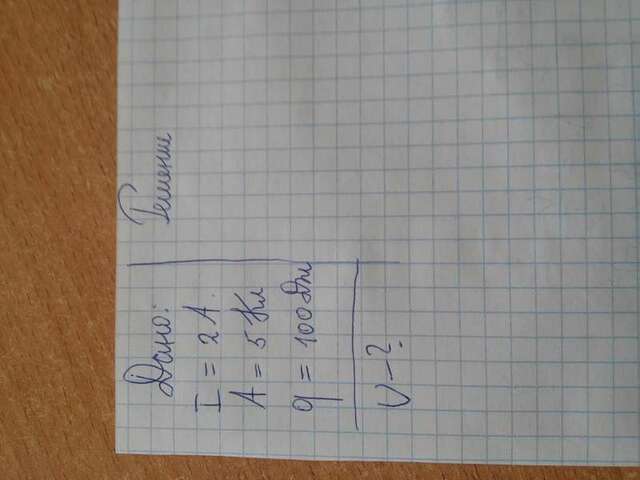 Дано:
I = 2 А
A = 5 Кл
q = 100 Дж
U - ?
Решение